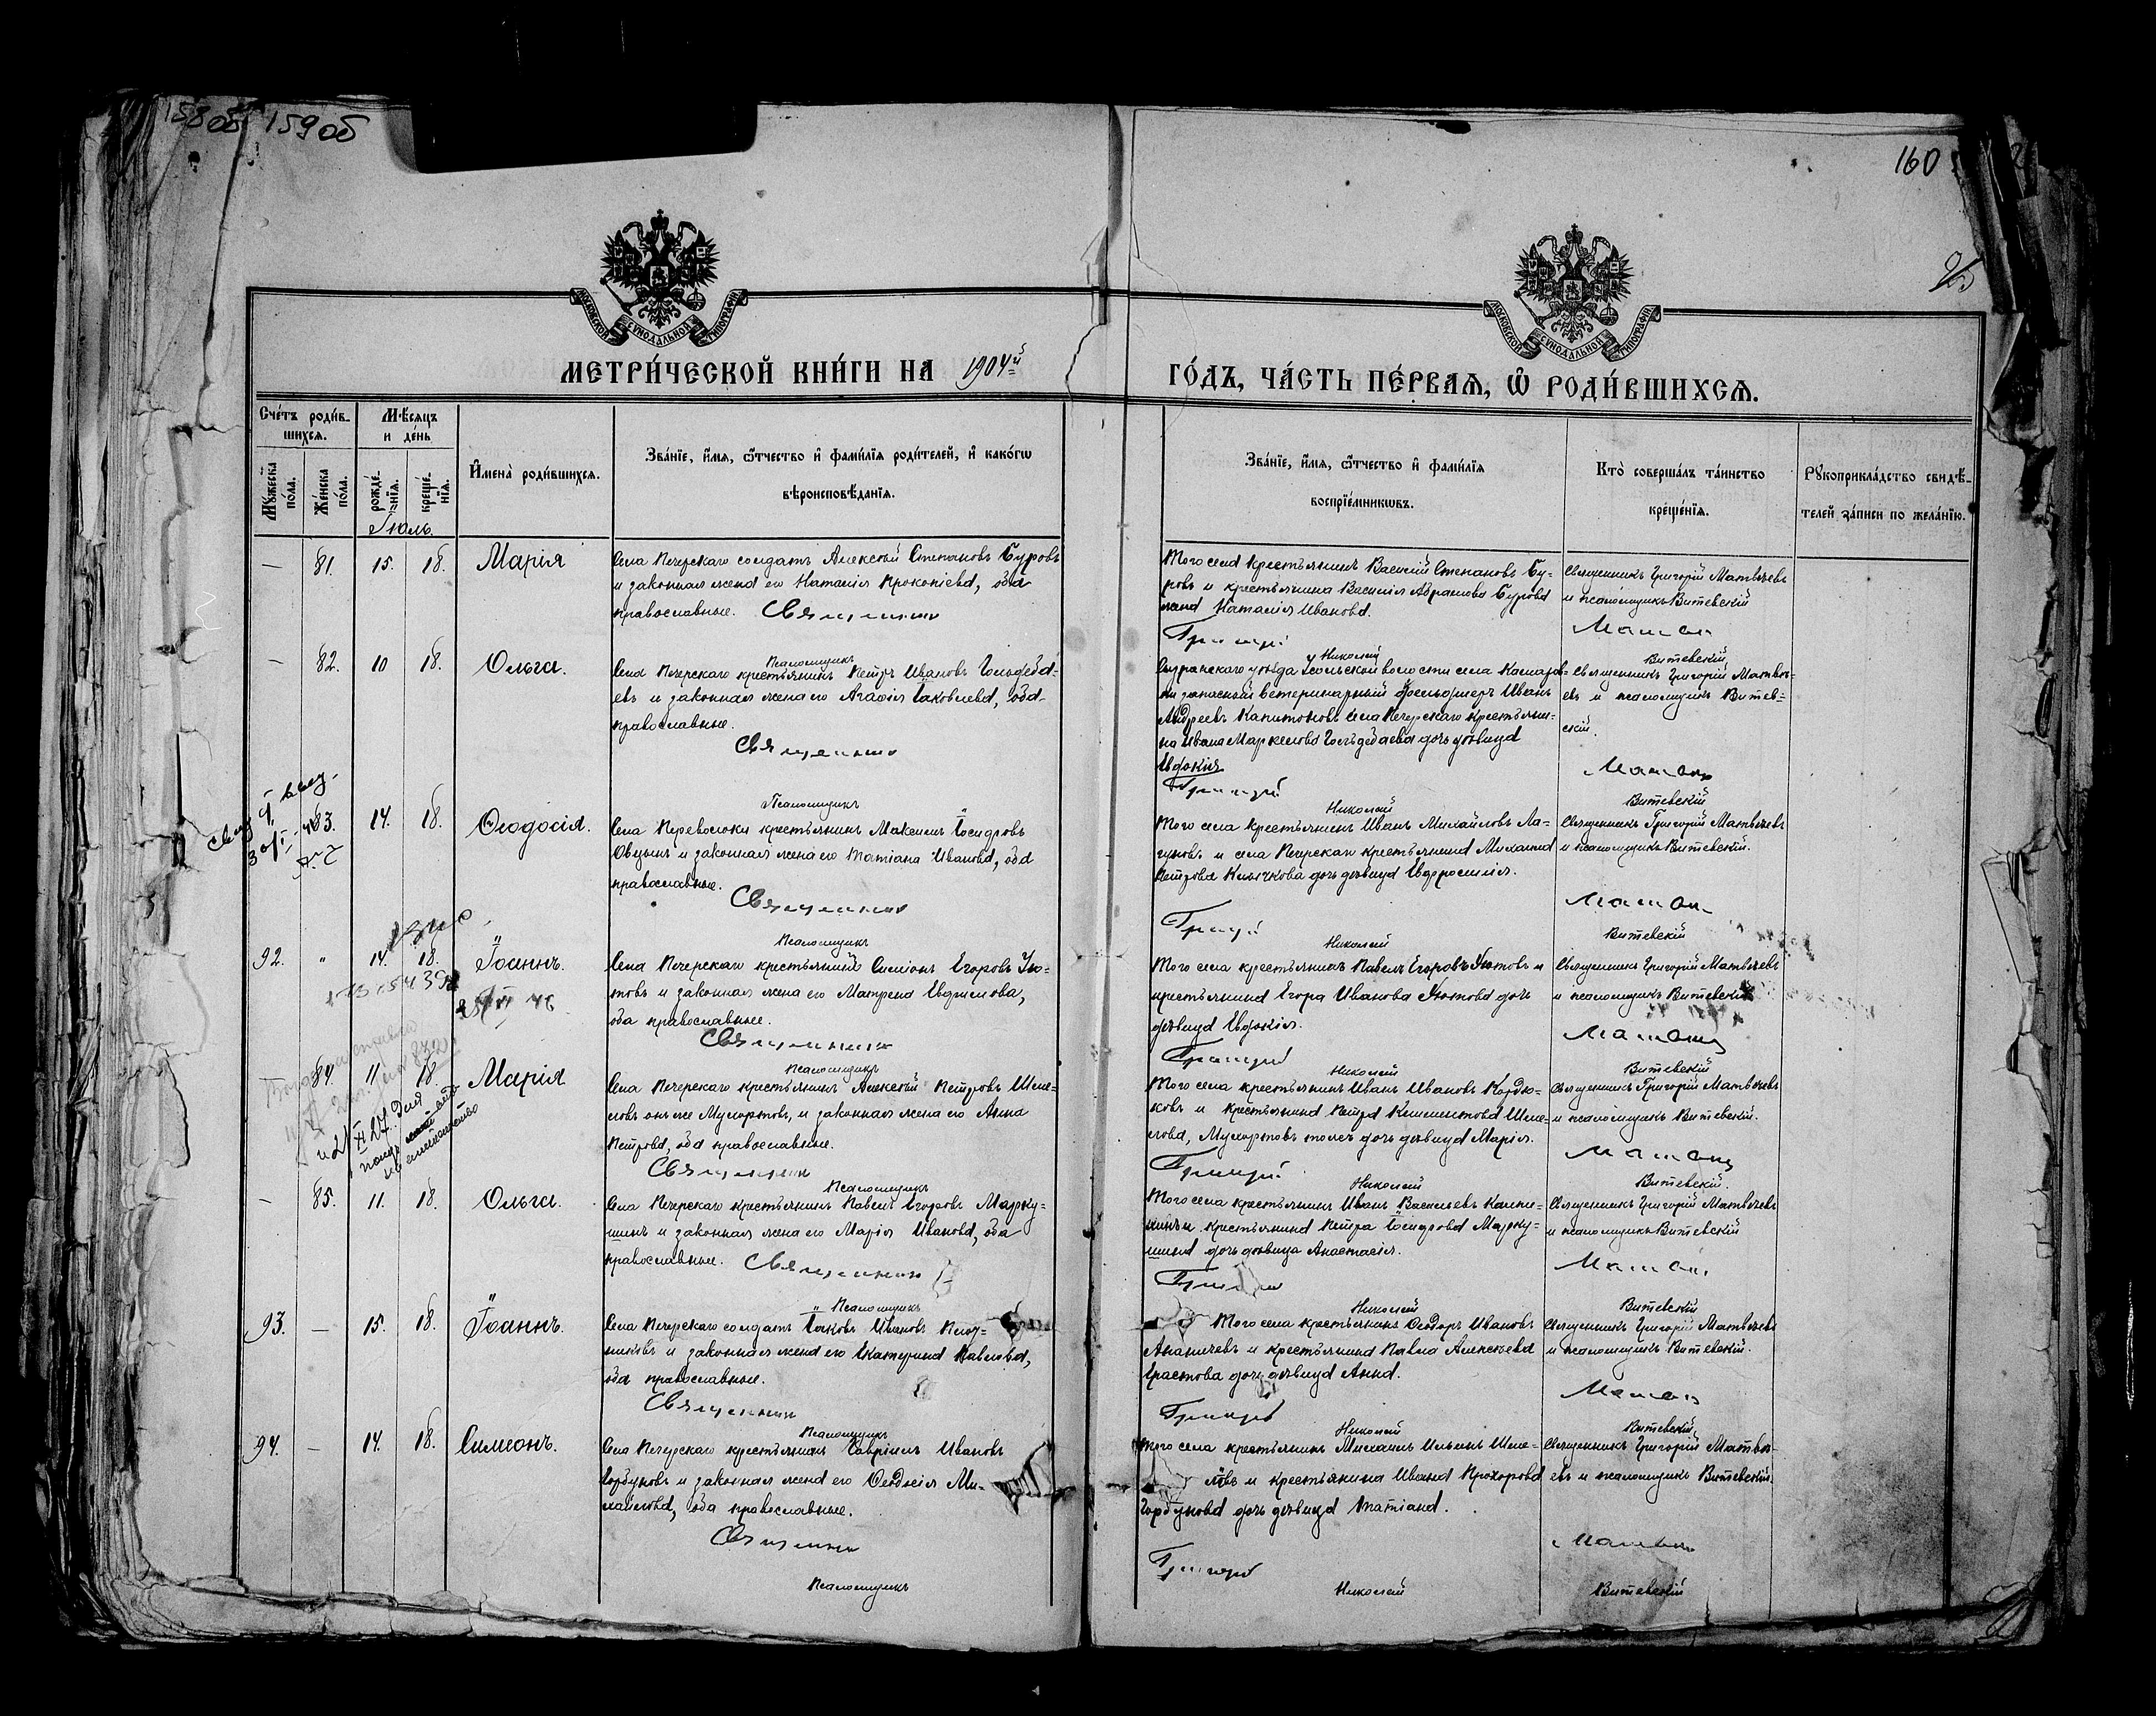 158об 159об
160
МОСКОВСКОЙ СѴНОДАЛЬНОЙ ТИПОГРАФІИ
МОСКОВСКОЙ СѴНОДАЛЬНОЙ ТИПОГРАФІИ
МЕТРИ́ЧЕСКОЙ КНИ́ГИ НА 1904й
ГО́ДЪ, ЧА́СТЬ ПЕ́РВАѦ, Ѽ РОДИ́ВШИХСѦ.
Сче́тъ роди́в-
шихсѧ.
Мꙋ́жеска по́ла.
Же́нска по́ла.
Мѣ́сѧцъ
и де́нь
рожде́-нїѧ.
креще́-нїѧ.
И҆мена̀ роди́вшихсѧ.
Зва́нїе, и҆́мѧ, ѻ҆́тчество и҆ фами́лїѧ роди́телей, и҆ како́гѡ
вѣроисповѣ́данїѧ.
Зва́нїе, и҆́мѧ, ѻ҆́тчество и҆ фами́лїѧ
воспрїе́мникѡвъ.
Кто̀ соверша́лъ та́инство
креще́нїѧ.
Рꙋкоприкла́дство свидѣ́-
телей за́писи по жела́нїю.
Іюль.
— 81. 15. 18. Марія
Села Печерскаго солдатъ Алексѣй Степановъ Буровъ
и законная жена его Наталія Прокопіева, оба
православные. Священникъ
Того села крестьянинъ Василій Степановъ Бу-
ровъ и крестьянина Василія Абрамова Бурова
жена Наталія Иванова.
Григорій
Священникъ Григорій Матвѣевъ
и псаломщикъ Витевскій
Матвѣевъ
Псаломщикъ Николай Витевскій
— 82. 10 18. Ольга.
Села Печерскаго крестьянинъ Петръ Ивановъ Гольдеба-
евъ и законная жена его Агафія Іаковлева, оба
православные.
Священникъ
Сызранскаго уѣзда Усольской волости села
запасный ветеринарный фельдшеръ Иванъ
Андреевъ Капитоновъ села Печерскаго крестьяни-
на Ивана Маркелова дочь дѣвица
Евдокія
Григорій
Священникъ Григорій Матвѣ-
евъ и псаломщикъ Витев-
скій.
Матвѣевъ
Псаломщикъ Николай Витевскій
83. 14. 18. Ѳеодосія.
Села Переволоки крестьянинъ Максимъ Іосифовъ
Овцынъ и законная жена его Татіана Иванова, оба
православные.
Священникъ
Того села крестьянинъ Иванъ Михайловъ Ла-
гуновъ и села Печерскаго крестьянина Михаила
Петрова Клычкова дочь дѣвица Евфросинія.
Григорій
Священникъ Григорій Матвѣевъ
и псаломщикъ Витевскій.
Матвѣевъ
Псаломщикъ Николай Витевскій
92. " 14. 18. Іоаннъ.
Села Печерскаго крестьянинъ Симіонъ Егоровъ Ую-
товъ и законная жена его Матрена Евфимова,
оба православные.
Священникъ
Того села крестьянинъ Павелъ Егоровъ Уютовъ и
крестьянина Егора Иванова Уютова дочь
дѣвица Евдокія.
Григорій
Священникъ Григорій Матвѣевъ
и псаломщикъ Витевскій
Матвѣевъ
Псаломщикъ Николай Витевскій
— 84. 11 18 Марія
Села Печерскаго крестьянинъ Алексѣй Петровъ Шме-
левъ онъ же Мухортовъ, и законная жена его Анна
Петрова, оба православные.
Священникъ
Того села крестьянинъ Иванъ Ивановъ Кордю-
ковъ и крестьянина Петра Климентова Шме-
лева, Мухортовъ тожъ дочь дѣвица Марія.
Григорій
Священникъ Григорій Матвѣевъ
и псаломщикъ Витевскій.
Матвѣевъ
Псаломщикъ Николай Витевскій.
— 85. 11. 18. Ольга.
Села Печерскаго крестьянинъ Павелъ Егоровъ Марку-
шинъ и законная жена его Марія Иванова, оба
православные. Священникъ
Того села крестьянинъ Иванъ Васильевъ
и крестьянина Петра Іосифова Марку-
шина дочь дѣвица Анастасія.
Григорій
Священникъ Григорій Матвѣевъ
и псаломщикъ Витевскій
Матвѣевъ
Псаломщикъ Николай Витевскій
93. — 15. 18. Іоаннъ.
Села Печерскаго солдатъ Іаковъ Ивановъ Плот-
никовъ и законная жена его Екатерина Павлова,
оба православные.
Священникъ
Того села крестьянинъ Ѳеодоръ Ивановъ
Ананичевъ и крестьянина Павла Алексѣева
дочь дѣвица Анна.
Григорій
Священникъ Григорій Матвѣевъ
и псаломщикъ Витевскій.
Матвѣевъ
Псаломщикъ Николай Витевскій
94. — 14. 18. Симеонъ.
Села Печерскаго крестьянинъ Гавріилъ Ивановъ
Горбуновъ и законная жена его Ѳеодосія Ми-
хайлова, оба православные.
Священникъ
Того села крестьянинъ Михаилъ Ильинъ Шме-
левъ и крестьянина Ивана Прохорова
Горбунова дочь дѣвица Татіана.
Григорій
Священникъ Григорій Матвѣ-
евъ и псаломщикъ Витевскій.
Матвѣевъ
Псаломщикъ Николай Витевскій